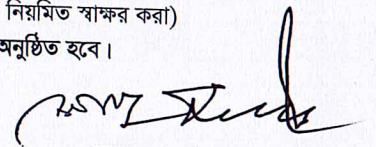 নিয়মিত স্বাক্ষর করা)
অনুষ্ঠিত হবে।